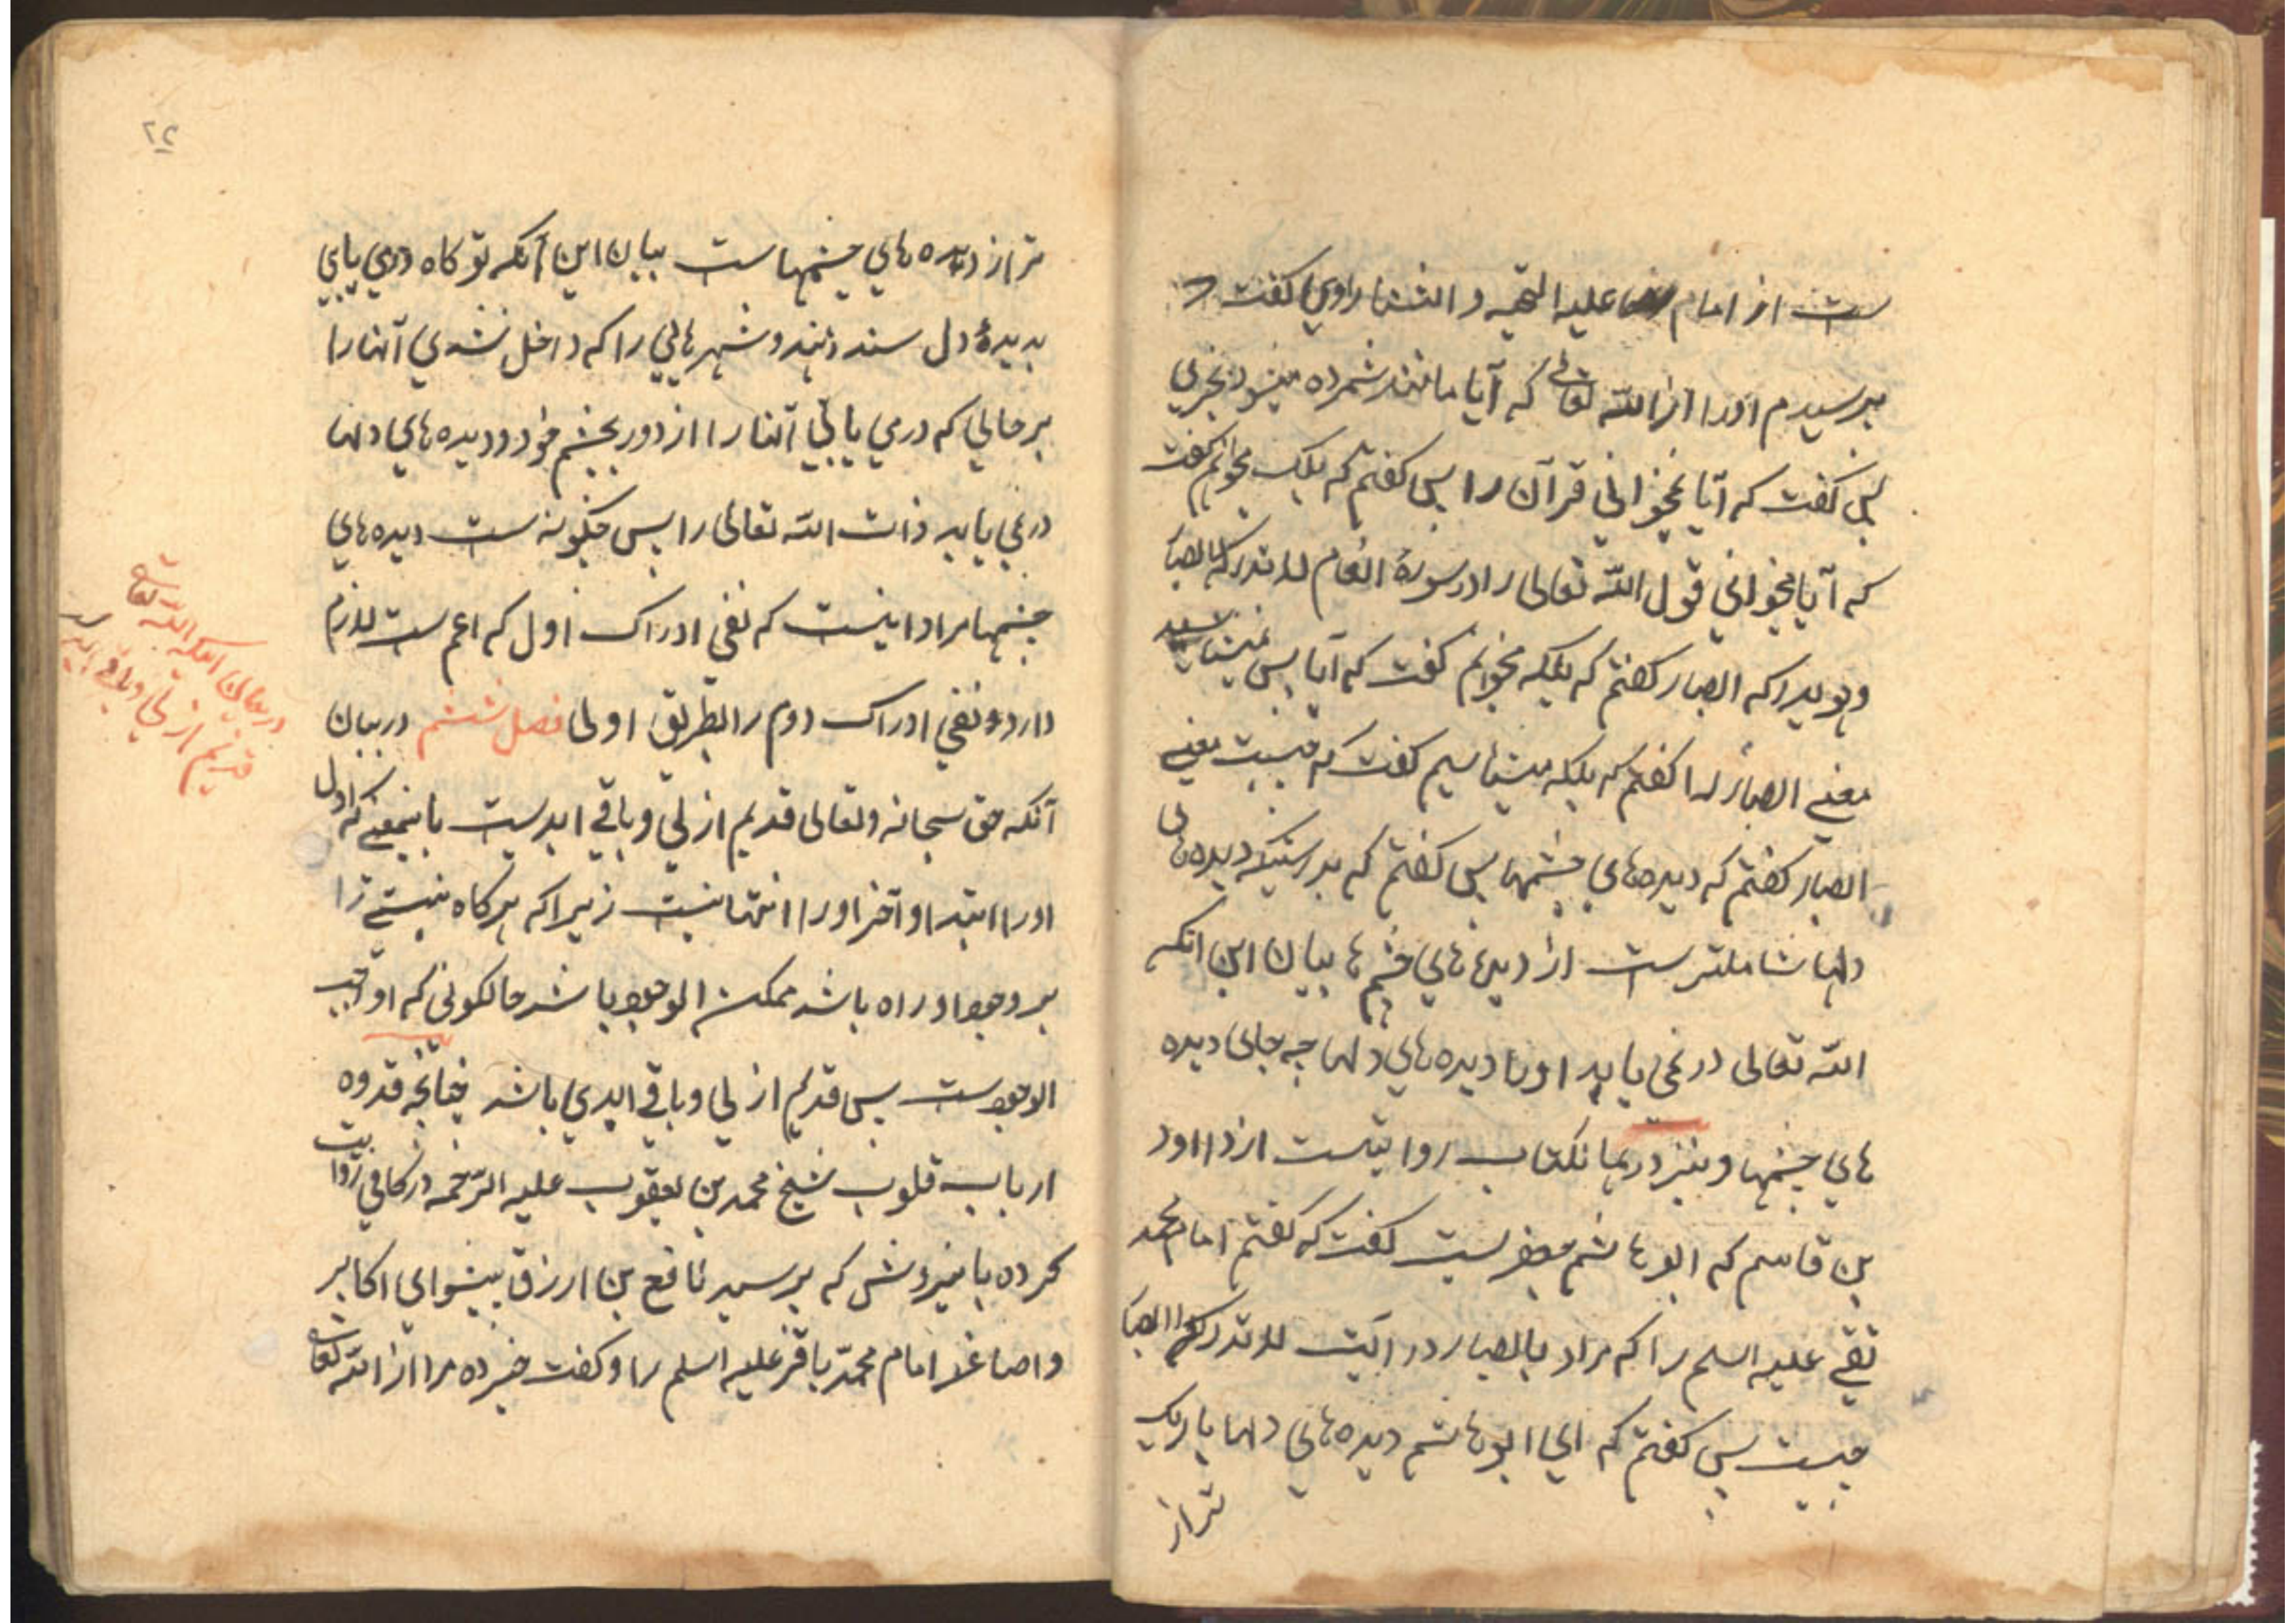 ست از امام رضا علیه التحیه و الثنا راوی گفت
پرسیدم اورا از الله تعالی که آیا مانند شمرده میشود بچیزی
پس گفت که آیا نمیخوانی قرآن را پس گفتم که بلکه میخوانم گفت
که آیا نمیخوانی قول الله تعالی را در سورهٔ انعام لا تدرکه الابصار
وهو یدرک الابصار گفتم که بلکه میخوانم گفت که آیا پس میشناسید
معنی ابصار را گفتم که بلکه میشناسیم گفت که چیست معنی
ابصار گفتم که دیده‌های چشمها پس گفتم که بدرستیکه دیده‌های
دلها شاملترست از دیدهای چشم‌ها بیان این انکه
الله تعالی درنمی یابد اورا دیده‌های دلها چه جای دیده
های چشمها و نیز در همانکتاب روایتست از داود
بن قاسم که ابو هاشم جعفریست گفت که گفتم امام محمد
تقی علیه السلم را که مراد بابصار در آیت لا تدرکه الابصار
چیست پس گفتم که ای ابو هاشم دیده‌های دلها باریک
تر از
۲۴
تر از دیده های چشمهاست بیان این آنکه تو کاه درمی یابی
بدیدهٔ دل سند و هند و شهرهایی را که داخل نشدی آنها را
بر حالی که درمی یابی آنها را از دور بچشم خود و دیده های دلها
درنمی یابد ذات الله تعالی را پس چگونه ست دیده های
چشمها مراد اینست که نفی ادراک اول که اعم ست لازم
دارد نفی ادراک دوم را بطریق اولی فصل ششم در بیان
آنکه حق سبحانه وتعالی قدیم ازلی و باقی ابدیست باینمعنی که اول
اورا ابتدا و آخر اورا انتها نیست زیرا که هرکاه نیستی را
بر وجود او راه باشد ممکن الوجود باشد حالکونی که او واجب
الوجودست پس قدیم ازلی و باقی ابدی باشد چنانچه قدوه
ارباب قلوب شیخ محمد بن یعقوب علیه الرحمه در کافی روایت
کرده باینروش که پرسید نافع بن ازرق پیشوای اکابر
و اصاغر امام محمد باقر علیه السلم را و گفت خبر ده مرا از الله تعالی
در بیان اینکه الله تعالی
قدیم ازلی و باقی ابدیست